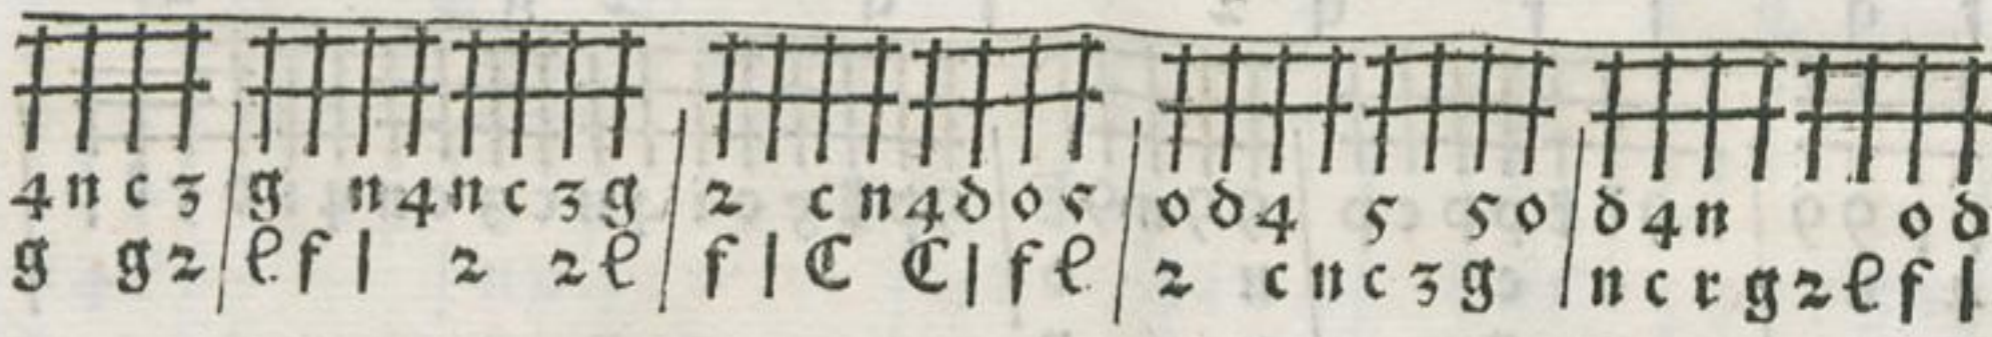 4 n c 3 | g n 4 n c 3 g | 2 c n 4 d o 5 | o d 4 5 5 o | d 4 n o d
g g 2 | e f l 2 2 e | f l C C l f e | 2 c n c 3 g | n c r g 2 e f l